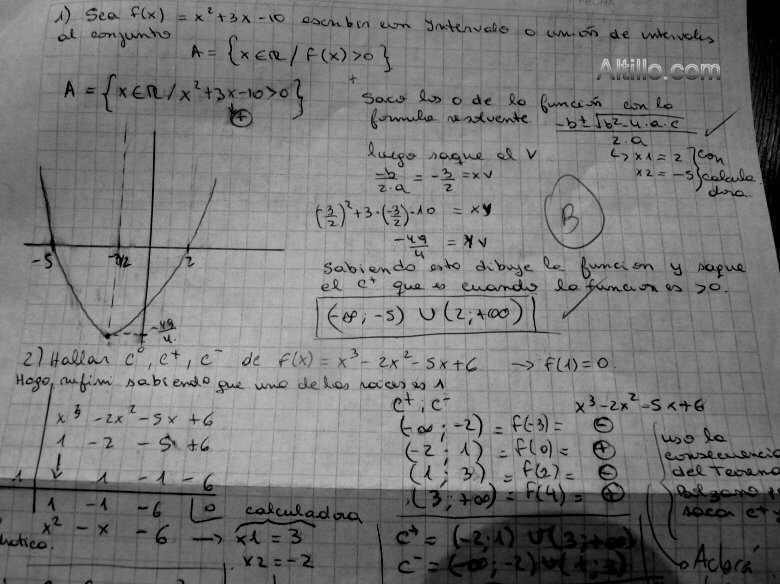 1) Sea f(x) = x² + 3x - 10 escribir con Intervalo o unión de intervalos
al conjunto
A = {x ∈ R / f(x) > 0}
Altillo.com
A = {x ∈ R / x² + 3x - 10 > 0}
+
Saco los 0 de la función con la
formula resolvente -b ± √b² - 4.a.c
2.a
x1 = 2
x2 = -5
con
calcula
dora.
luego saque el V
-b/2.a = -3/2 = xv
(-3/2)² + 3.(-3/2) - 10 = xy
-49/4 = yv
B
Sabiendo esto dibuje la funcion y saque
el c⁺ que es cuando la funcion es > 0.
(-∞; -5) ∪ (2; +∞)
-5 -3/2 2
-49/4.
2) Hallar c⁰, c⁺, c⁻ de f(x) = x³ - 2x² - 5x + 6 → f(1) = 0.
Hago rufini sabiendo que una de las raices es 1
x³ -2x² -5x +6
1 -2 -5 +6
1 1 -1 -6
1 -1 -6 0
x² -x -6 →
calculadora
x1 = 3
x2 = -2
c⁺; c⁻ x³ - 2x² - 5x + 6
(-∞; -2) = f(-3) = ⊖
(-2; 1) = f(0) = ⊕
(1; 3) = f(2) = ⊖
(3; +∞) = f(4) = ⊕
c⁺ = (-2; 1) ∪ (3; +∞)
c⁻ = (-∞; -2) ∪ (1; 3)
uso la
consecuencia
del Teorema
Bolzano
sacar c⁺